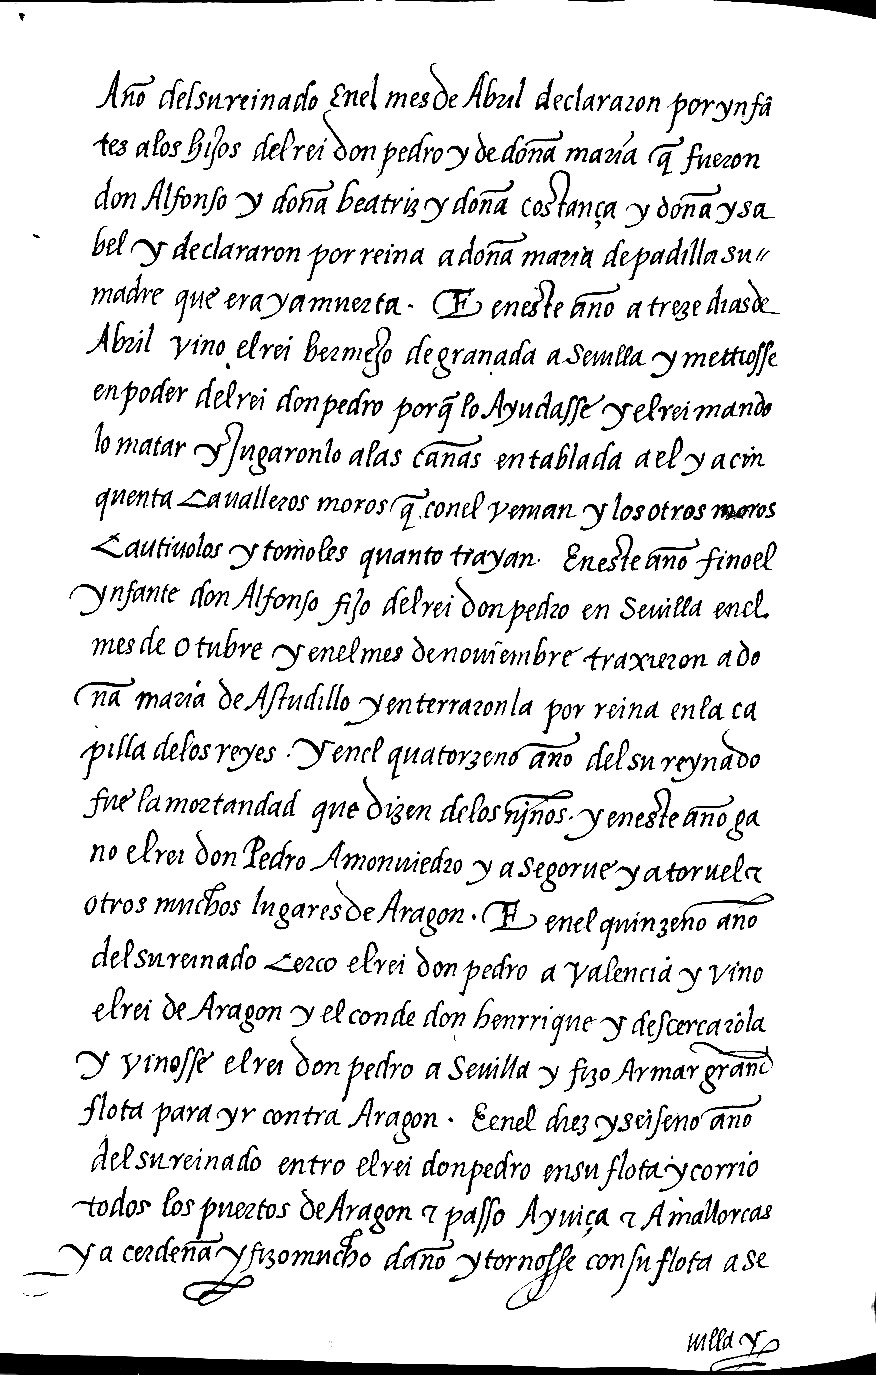 Año del su reinado Enel mes de Abril declararon por ynfã
tes a los hijos del rei don pedro y de doña maria q̃ fueron
don Alfonso y doña beatriz y doña costança y doña ysa
bel y declararon por reina a doña maria de padilla su〃
madre que era ya muerta . E en este año a treze dias de
Abril vino el rei bermejo de granada a Sevilla y mettiosse
en poder del rei don pedro porq̃ lo Ayudasse y el rei mando
lo matar y Jugaronlo a las cañas en tablada a el y a cin
quenta Cavalleros moros q̃ con el venian y los otros moros
Cautivolos y tomoles quanto trayan . En este año fino el
ynfante don Alfonso fijo del rei don pedro en Sevilla en el
mes de Otubre y en el mes de noviembre traxieron a do
ña maria de Astudillo y enterraronla por reina en la ca
pilla de los reyes . Y en el quatorzeno año del su reynado
fue la mortandad que dizen de los niños . y en este año ga
no el rei don Pedro A monviedro y a segorve y a toruel &
otros muchos lugares de Aragon . E en el quinzeno año
del su reinado Cerco el rei don pedro a valencia y vino
el rei de Aragon y el conde don henrrique y descercarõla
Y vinosse el rei don pedro a Sevilla y fizo Armar grand
flota para yr contra Aragon . E en el diez y seiseno año
del su reinado entro el rei don pedro en su flota y corrio
todos los puertos de Aragon & passo A yviça & A mallorcas
y a cerdeña y fizo mucho daño y tornosse con su flota a se
villa y